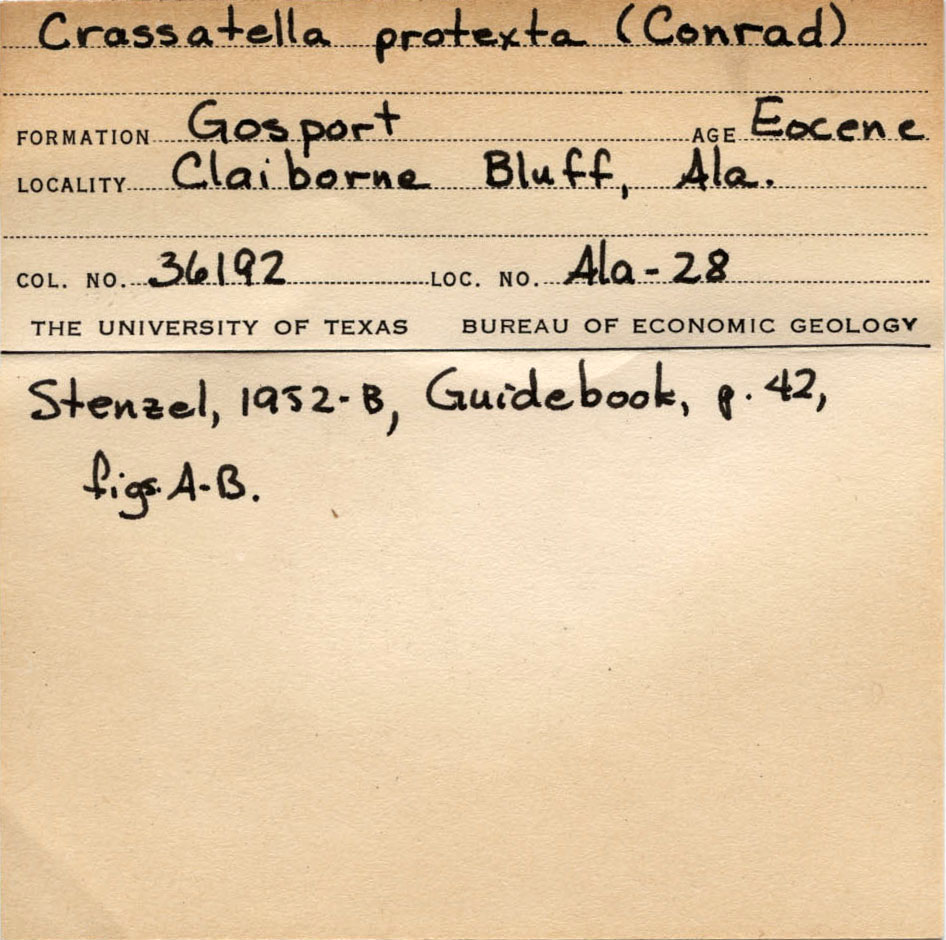 Crassatella protexta (Conrad)
FORMATION Gosport AGE Eocene
LOCALITY Claiborne Bluff, Ala.
COL. NO. 36192 LOC. NO. Ala-28
THE UNIVERSITY OF TEXAS BUREAU OF ECONOMIC GEOLOGY
Stenzel, 1952-B, Guidebook, p. 42,
figs. A-B.